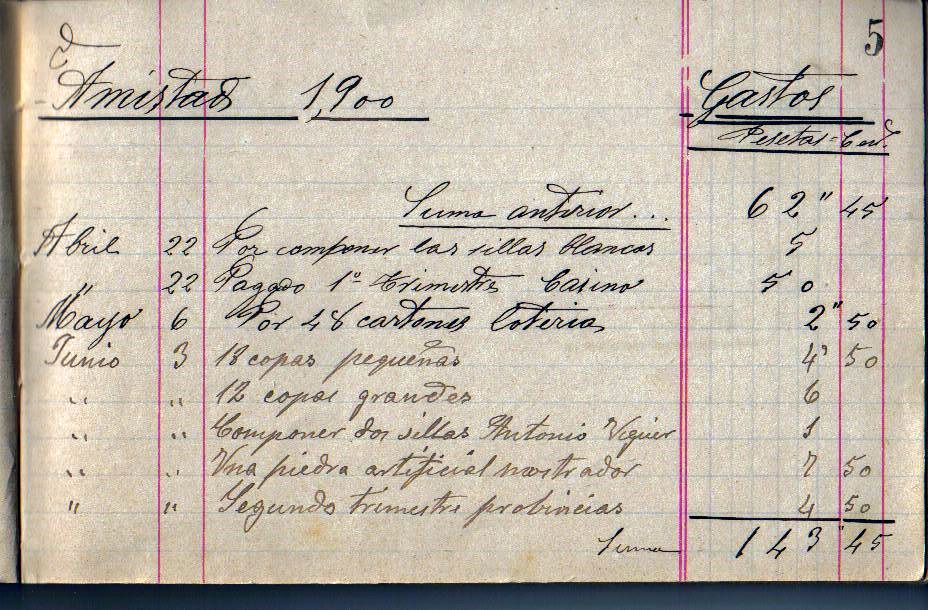 5
Amistad 1,900 Gastos
Pesetas = Cent.
Suma anterior... 62" 45
Abril 22 Por componer las sillas blancas 5
" 22 Pagado 1º Trimestre Casino 50
Mayo 6 Por 48 cartones loteria 2" 50
Junio 3 18 copas pequeñas 4" 50
" " 12 copas grandes 6
" " Componer dos sillas Antonio Viguer 1
" " Una piedra artificial mostrador 7 50
" " Segundo trimestre probincias 4 50
Suma 143 "45